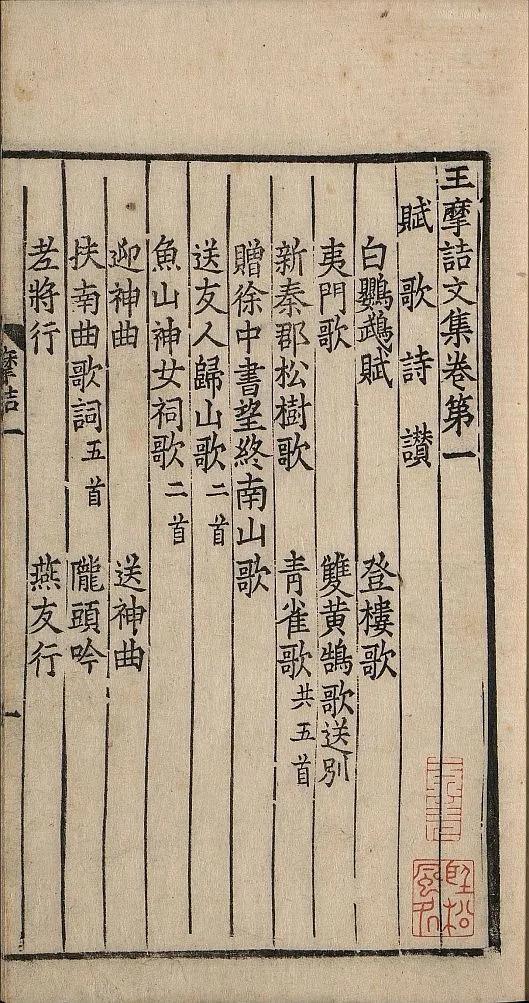 王摩詰文集卷第一
賦歌詩讚
白鸚鵡賦 登樓歌
夷門歌 雙黃鵠歌送別
新秦郡松樹歌 青雀歌共五首
贈徐中書望終南山歌
送友人歸山歌二首
魚山神女祠歌二首
迎神曲 送神曲
扶南曲歌詞五首 隴頭吟
老將行 燕友行
摩詰一
一